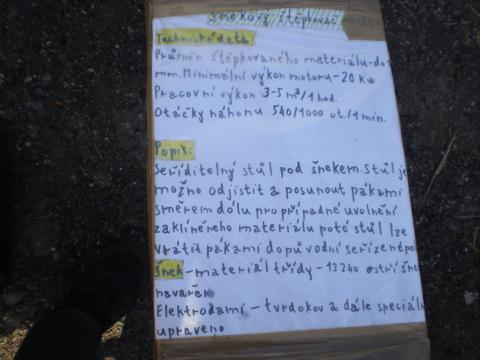 Šnekový štěpkovač
Technická data:
Průměr štěpkovaného materiálu-do
mm. Minimální výkon motoru-20 kw
Pracovní výkon 3-5 m³/1 hod.
Otáčky náhonu 540/1000 ot./1 min.
Popis:
Seřiditelný stůl pod šnekem. Stůl je
možno odjistit a posunout pákami
směrem dólu pro případné uvolnění
zaklíněného materiálu poté stůl lze
vrátit pákami do původní seřízené po
Šnek-materiál třídy-13240 ostří šne
navařen
Elektrodami - tvrdokov a dále speciál
upraveno